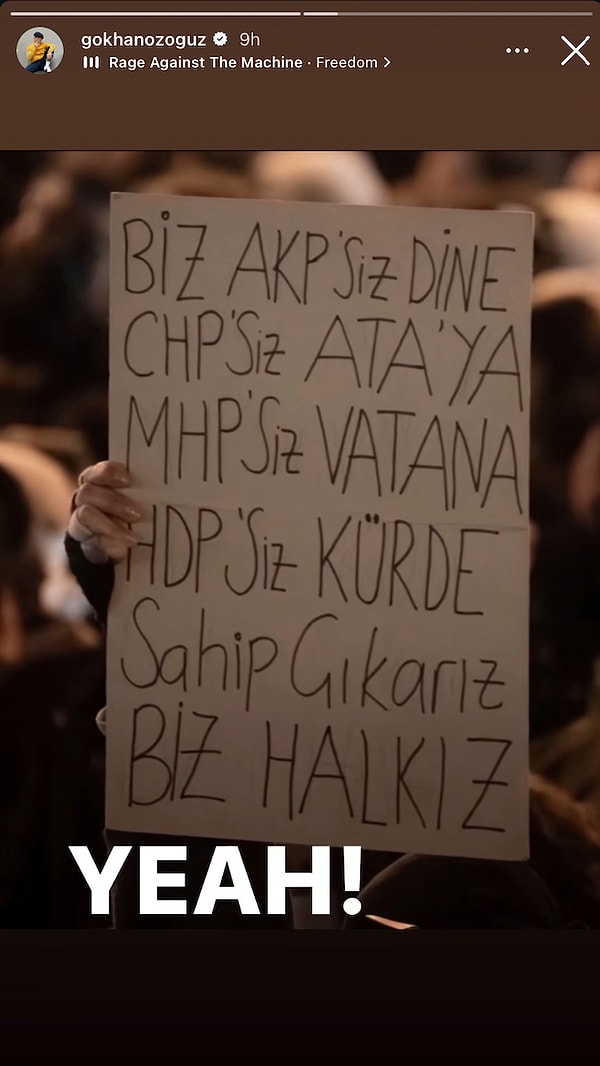 gokhanozoguz 9h
Rage Against The Machine · Freedom
BİZ AKP'Siz DİNE
CHP'Siz ATA'YA
MHP'Siz VATANA
HDP'Siz KÜRDE
Sahip Çıkarız
BİZ HALKIZ
YEAH!